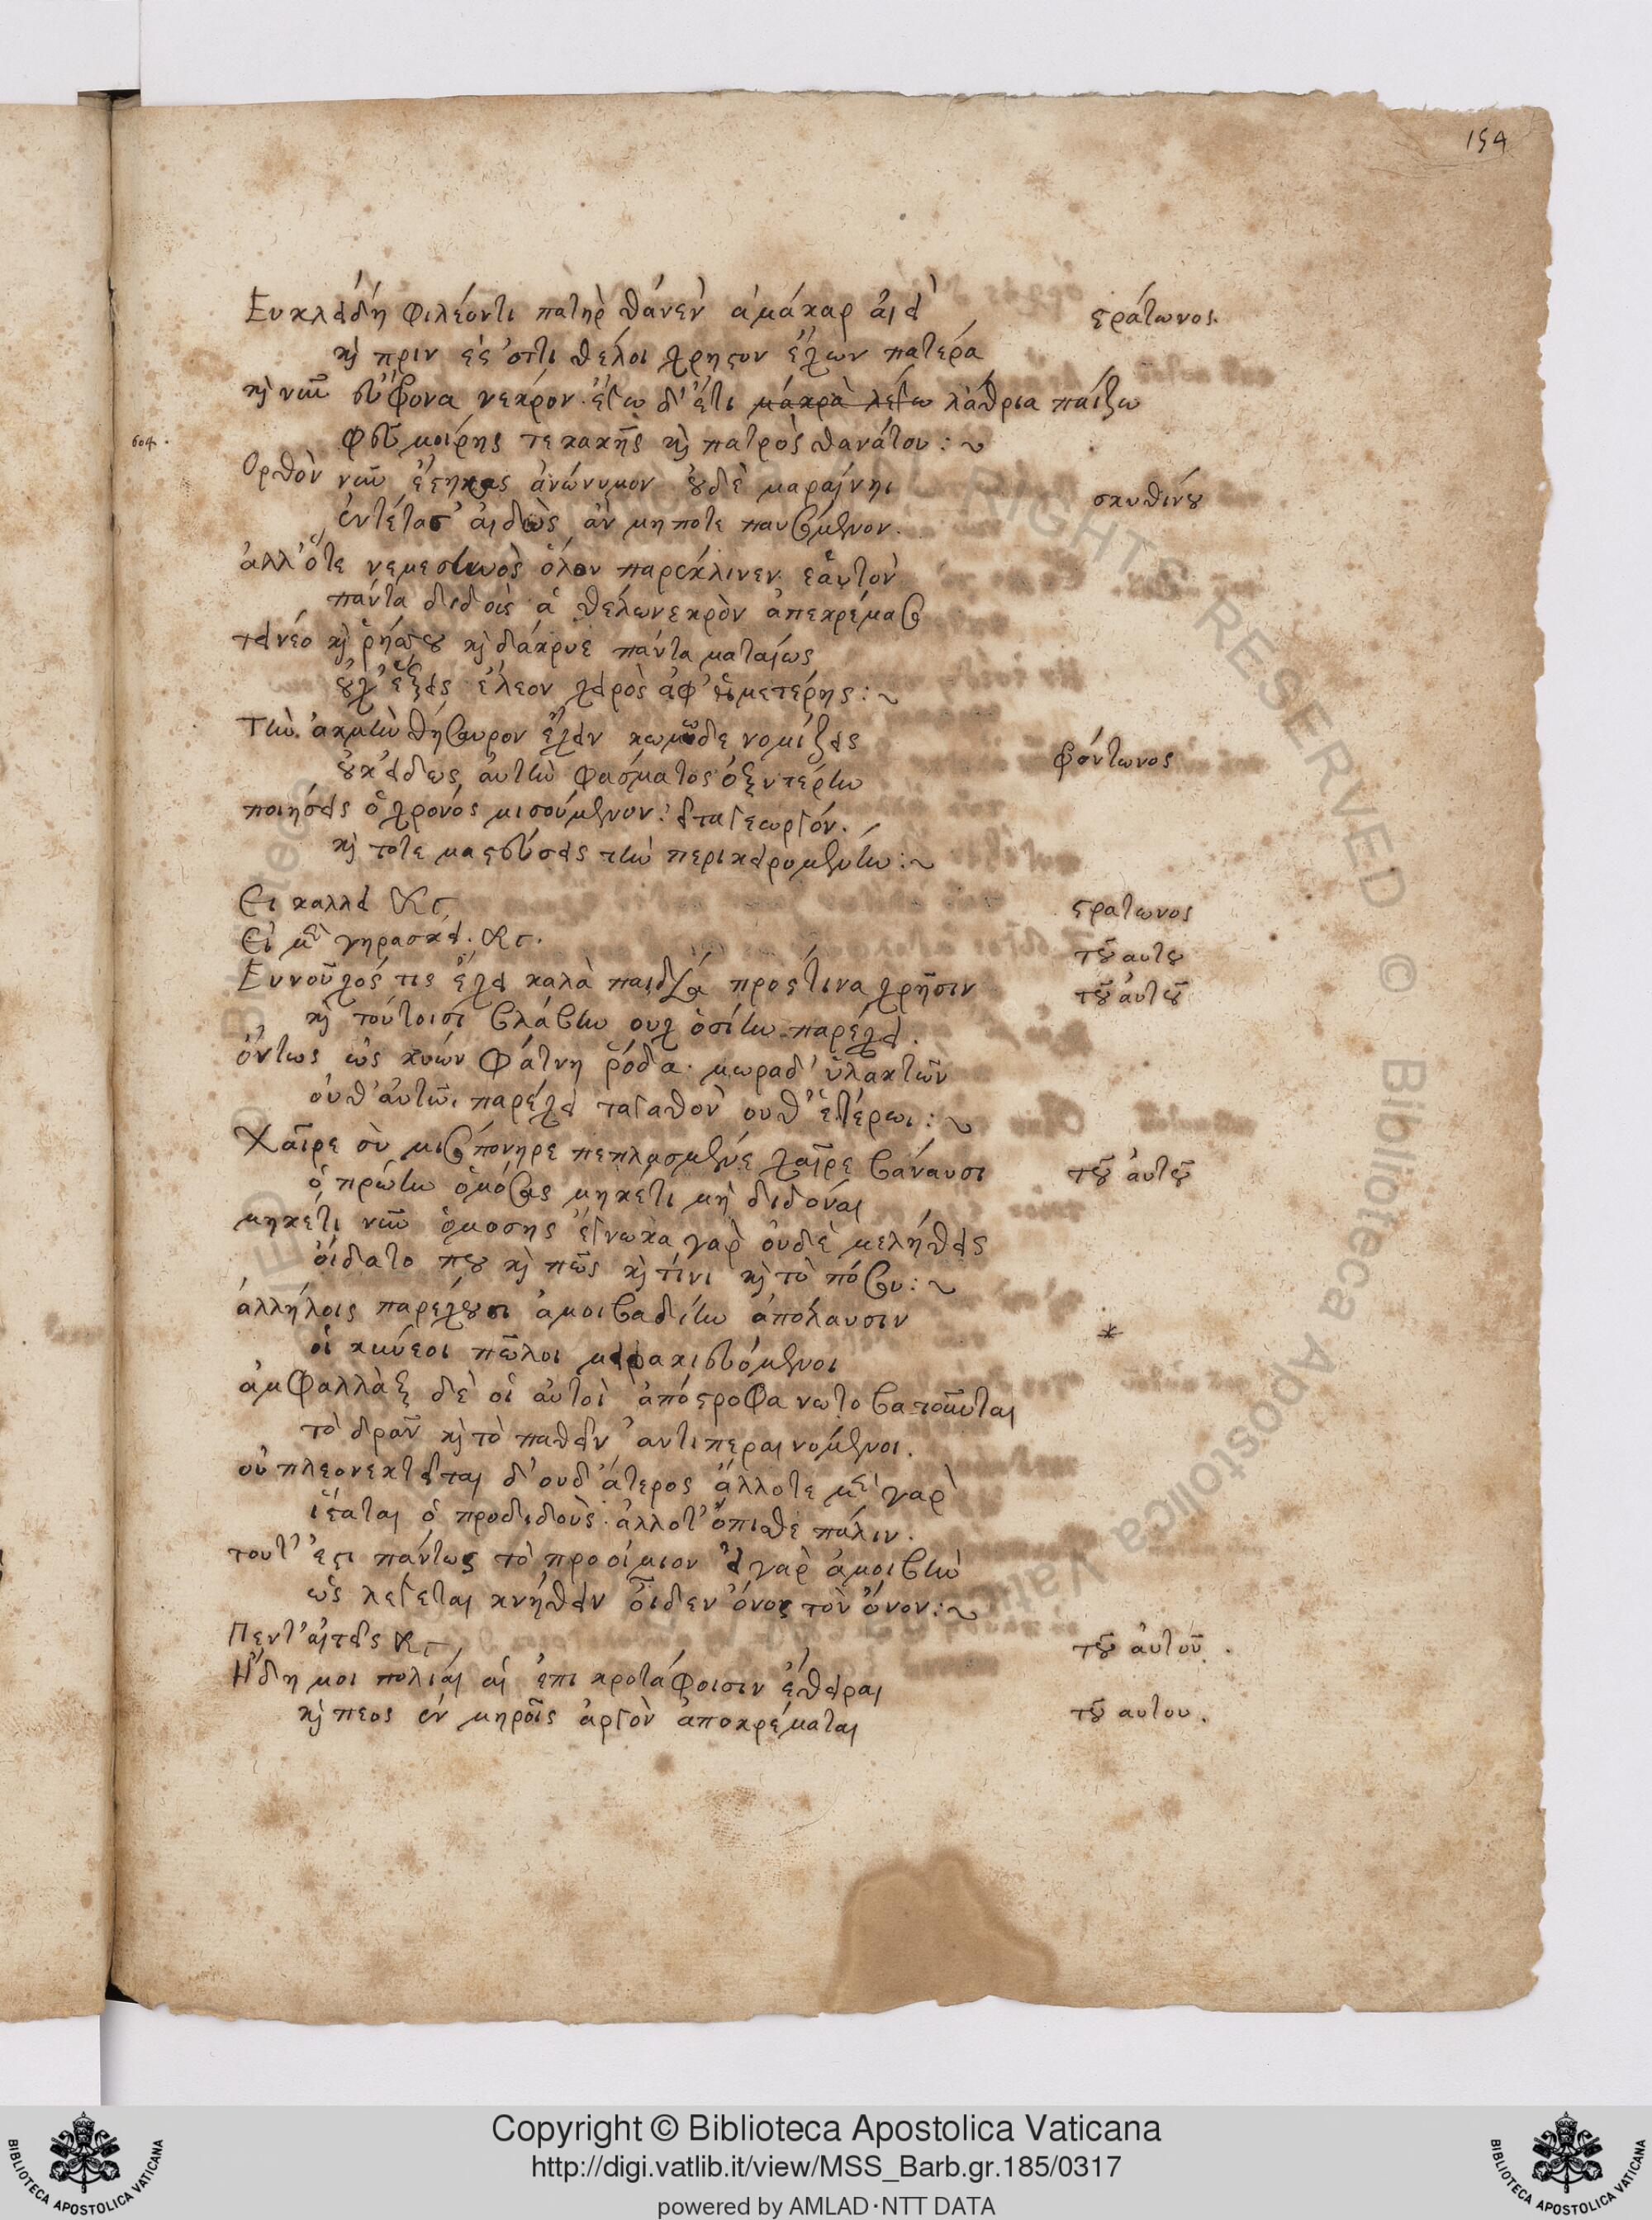 154
Ευκλείδῃ φιλέοντι πατὴρ θάνεν ἀμάκαρ ἀιεὶ ϛράτωνος.
κ̀ πριν ἐς ὅττι θέλοι χρηϛον ἔχων πατέρα
κ̀ νῦν εὔφρονα νεκρόν. ἐγω δ' ἔτι μακρὰ λέγω λάθρια παίζω
φεῦ μοίρης τε κακῆς κ̀ πατρὸς θανάτου :~
Ορθὸν νῦν ἕϛηκας ἀνώνυμον ȣδὲ μαραίνηι σκυθίνȣ
ἐντέτασ' ἀιδὼς ἀν μη ποτε παυσόμενον.
ἀλλ' ὅτε νεμεσηνὸς ὅλον παρέκλινεν ἑαυτὸν
πάντα διδοὶς ἃ θέλω νεκρὸν ἀπεκρέμασο
τείνεο κ̀ ῥήσσȣ κ̀ δάκρυε πάντα ματαίως
ȣχ' ἕξεις ἔλεον χειρὸς ἀφ' ἡμετέρης :~
Τὴν ἀκμὴν θήσαυρον ἔχειν κωμῶδε νομίζεις φρόντωνος
ȣκ' ειδως αὐτὴν φασματος ὀξυτέρην
ποιήσεις ὁ χρονός μισούμενον. εἶτα γεωργόν.
κ̀ τοτε μαϛεύσεις τὴν περικειρομένην :~
Ει καλλει κτ, ϛρατωνος
Εἰ μὲ γηρασκει. κτ. τȣ̃ αυτȣ
Ευνοῦχός τις ἔχει καλὰ παιδία πρὸς τινα χρῆσιν τȣ̃ αυτȣ̃
κ̀ τούτοισι βλάβην ουχ ὁσίην παρέχει.
ὄντως ὡς κυών φάτνη ῥόδα. μωρα δ' ὑλακτῶν
ουθ' αὐτῶι παρέχει ταγαθὸν ουθ' ἑτέρωι :~
Χαῖρε σὺ μισοπόνηρε πεπλασμένε χαῖρε βάναυσι τȣ̃ αυτȣ̃
ὁ πρώην ὁμόσας μηκέτι μὴ διδόναι
μηκέτι νῦν ὁμοσης ἔγνωκα γαρ ουδὲ μελήθεις
οἶδα το πȣ κ̀ πῶς κ̀ τίνι κ̀ τὸ πόσον :~
ἀλλήλοις παρέχȣσι ἀμοιβαδίην ἀπόλαυσιν *
οἱ κυνεοι πῶλοι μειρακιευόμενοι
ἀμφαλλὰξ δὲ οἱ αὐτοὶ ἀπόϛροφα νωτοβατοῦνται
τὸ δρᾶν κ̀ τὸ παθειν ἀντιπεραινομενοι.
οὐ πλεονεκτεῖται δ' ουδ' ἅτερος ἄλλοτε μὲν γαρ
ἵϛαται ὁ προδιδοὺς. ἀλλοτ' ὄπισθε πάλιν.
τουτ' ἔϛι πάντως τὸ προοίμιον εἰ γαρ ἀμοιβὴν
ὡς λέγεται κνήθειν οἶδεν ὄνος τὸν ὄνον :~
Πεντ' αἰτεῖς κτ, τȣ̃ αυτοῦ.
Ἤδη μοι πολιαὶ αἱ ἐπι κροτάφοισιν ἔθειραι
κ̀ πεος ἐν μηροῖς ἀργὸν ἀποκρέμαται τȣ̃ αυτου.
ALL RIGHTS RESERVED © Biblioteca Apostolica Vaticana
Copyright © Biblioteca Apostolica Vaticana
http://digi.vatlib.it/view/MSS_Barb.gr.185/0317
powered by AMLAD·NTT DATA
BIBLIOTECA APOSTOLICA VATICANA
BIBLIOTECA APOSTOLICA VATICANA